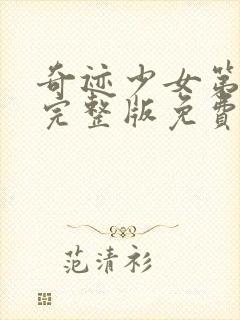 奇迹少女第
完整版免費
范清衫